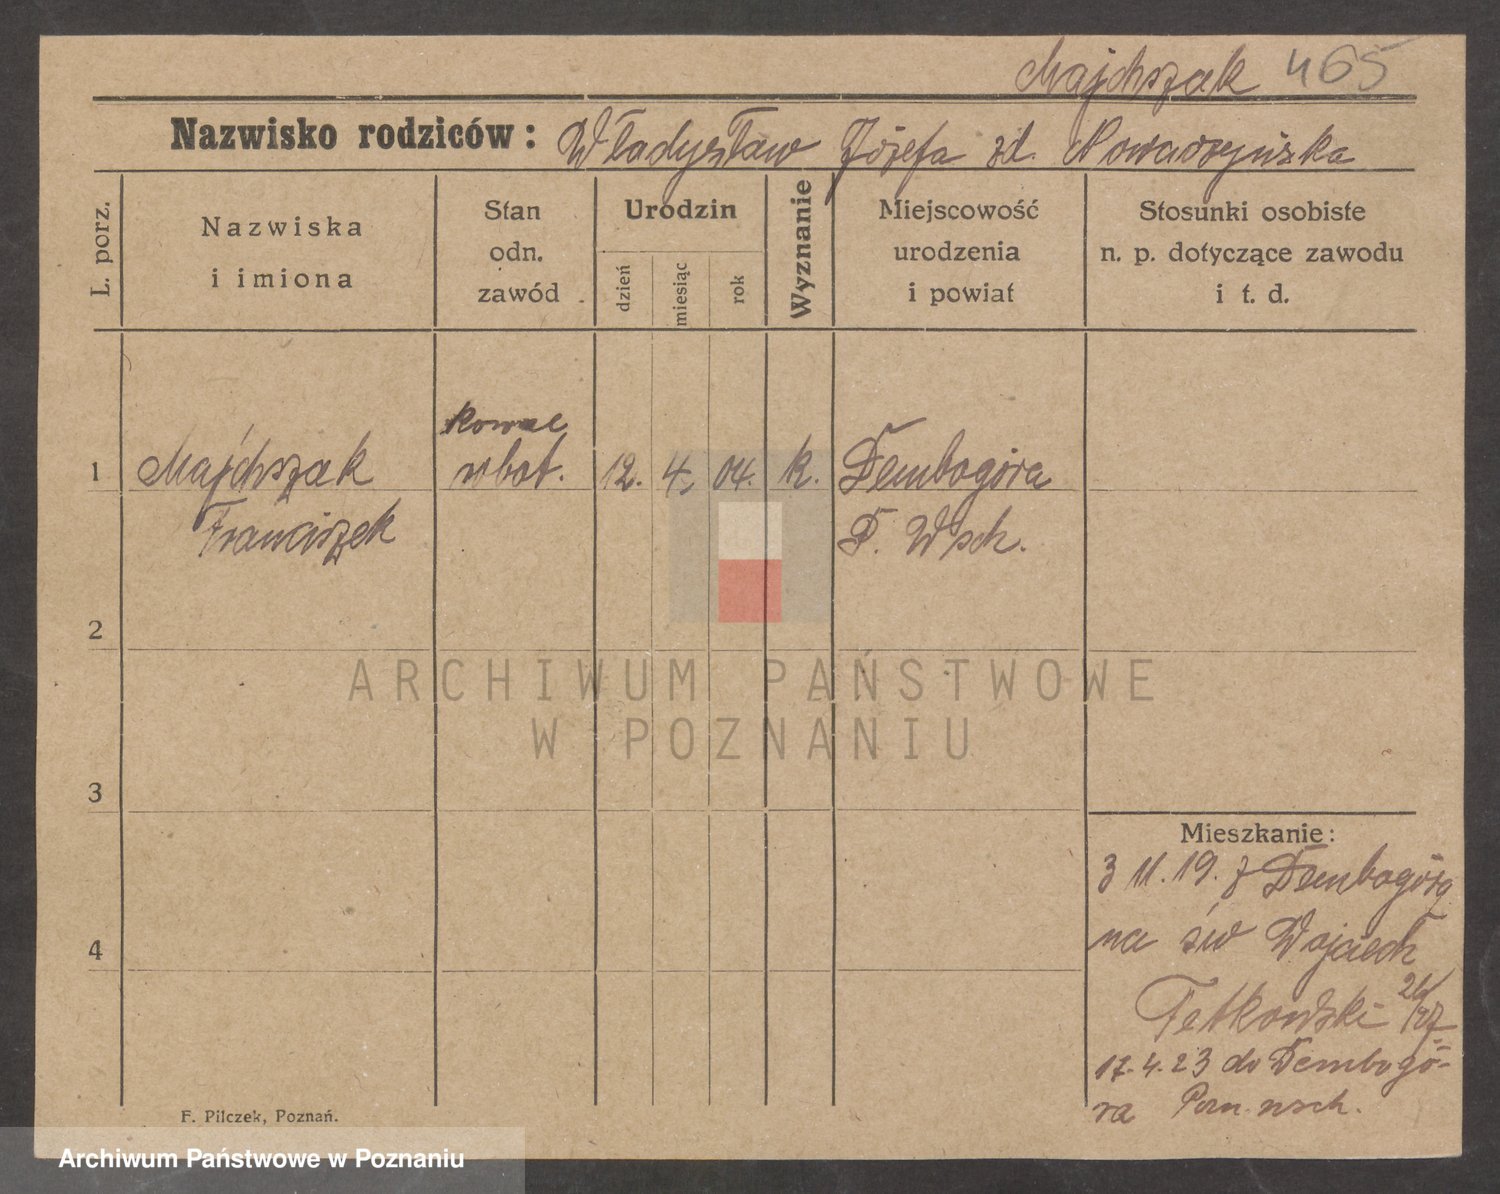 Majchszak 465
Nazwisko rodziców: Władysław Józefa zd. Nowaczyńska
L. porz.
Nazwiska
i imiona
Stan
odn.
zawód
Urodzin
dzień
miesiąc
rok
Wyznanie
Miejscowość
urodzenia
i powiat
Stosunki osobiste
n. p. dotyczące zawodu
i t. d.
kowal
1 Majchszak robot. 12. 4. 04. k. Dembogóra
Franciszek P. Wsch.
2
ARCHIWUM PAŃSTWOWE
W POZNANIU
3
Mieszkanie:
3 11. 19. z Dembogóra
na św Wojciech
4
Fetkowski
17. 4. 23 do Dembogó-
ra Pozn. wsch.
F. Pilczek, Poznań.
Archiwum Państwowe w Poznaniu